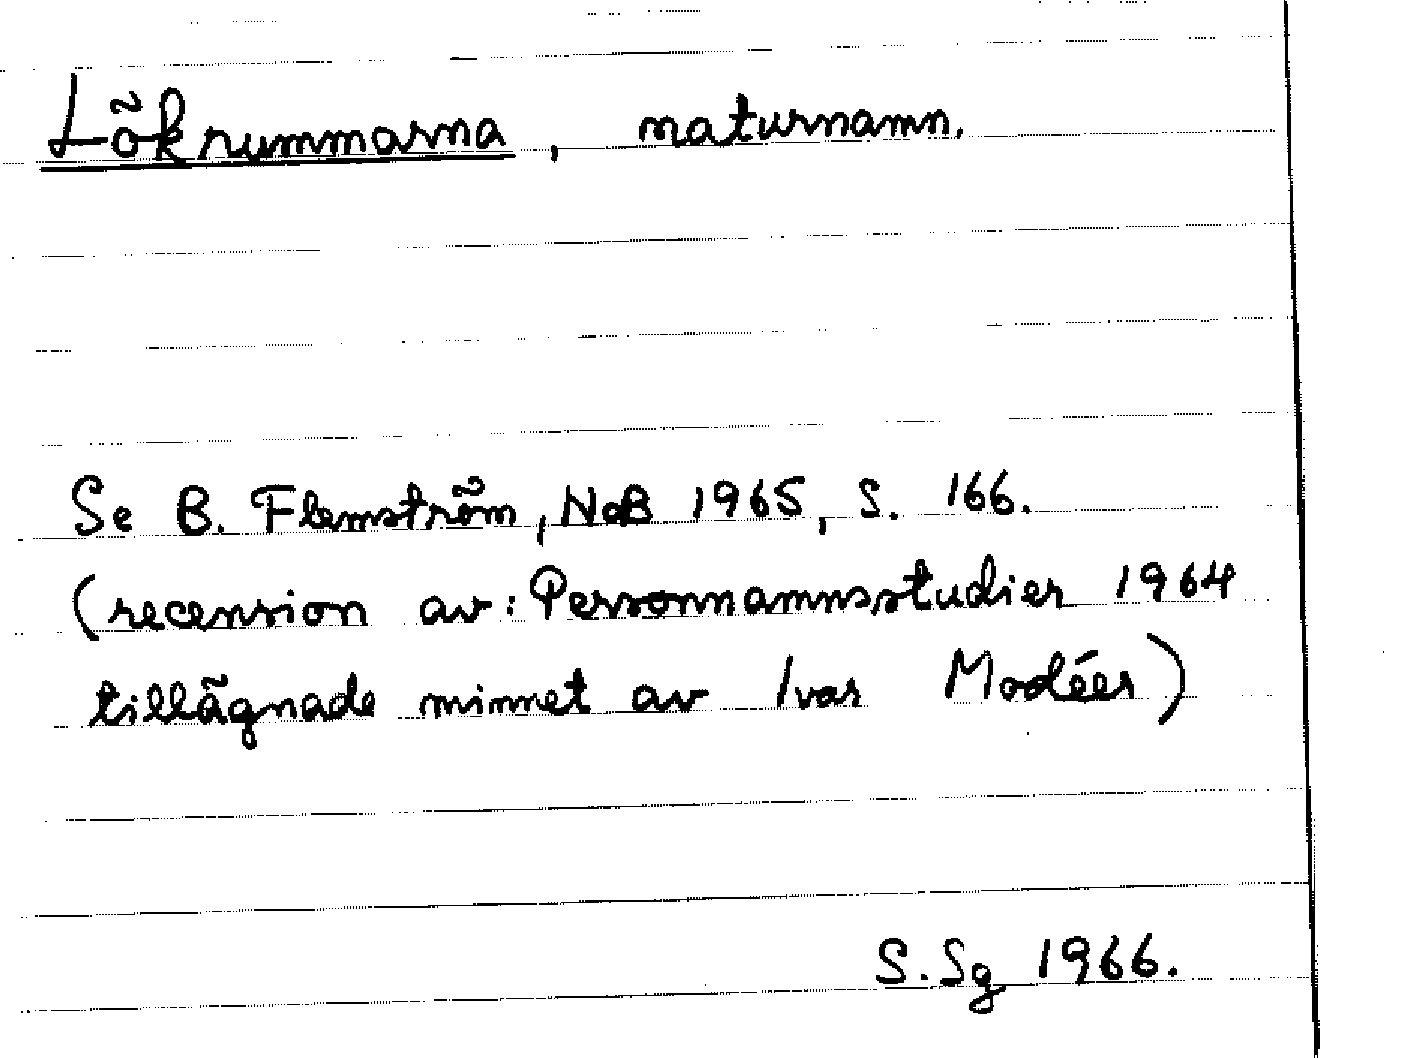 Lökrummarna, naturnamn.
Se B. Flemström, NoB 1965, S. 166.
(recension av: Personnamnsstudier 1964
tillägnade minnet av Ivar Modéer)
S. Sg 1966.